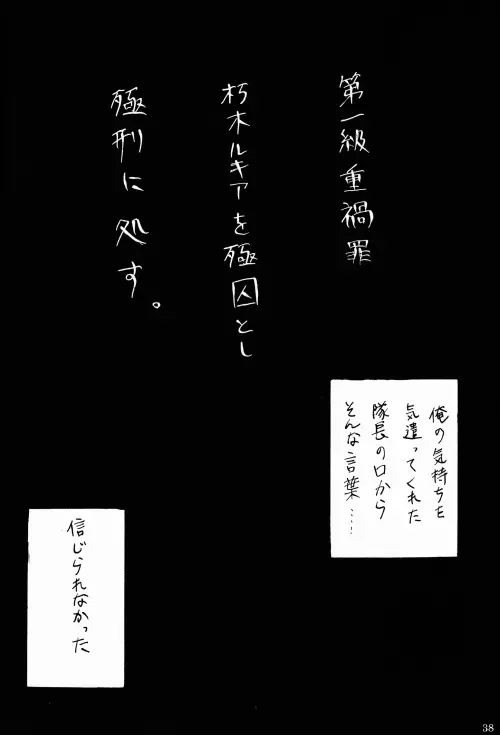 第一級重禍罪
朽木ルキアを殛囚とし
殛刑に処す。
俺の気持ちを
気遣ってくれた
隊長の口から
そんな言葉……
信じられなかった
38